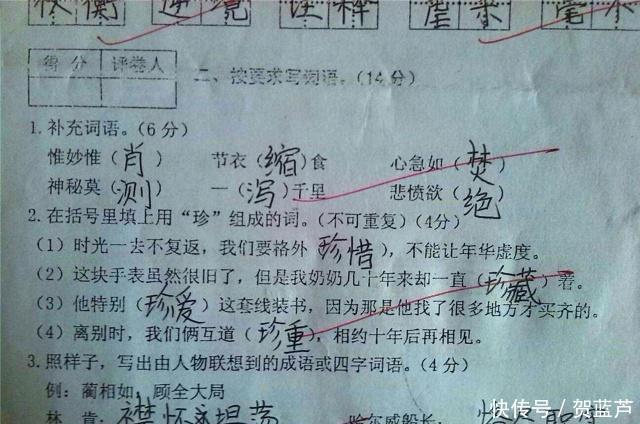 得分 评卷人
二、按要求写词语。(14分)
1.补充词语。(6分)
惟妙惟(肖) 节衣(缩)食 心急如(焚)
神秘莫(测) 一(泻)千里 悲愤欲(绝)
2.在括号里填上用“珍”组成的词。(不可重复)(4分)
(1)时光一去不复返，我们要格外(珍惜)，不能让年华虚度。
(2)这块手表虽然很旧了，但是我奶奶几十年来却一直(珍藏)着。
(3)他特别(珍爱)这套线装书，因为那是他找了很多地方才买齐的。
(4)离别时，我们俩互道(珍重)，相约十年后再相见。
3.照样子，写出由人物联想到的成语或四字词语。(4分)
例：蔺相如，顾全大局
林 肯：襟怀坦荡 哈尔威船长：
快传号／贺蓝芦